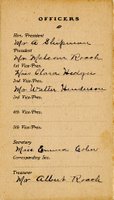 OFFICERS
Hon. President
Mr. A. Shipman
President
Mr. Malcom Roach
1st Vice/Pres.
Miss Clara Hedges
2nd Vice/Pres.
Mr. Walter Henderson
3rd Vice/Pres.
4th Vice/Pres.
5th Vice/Pres.
Secretary
Miss Emma
Corresponding Sec.
Treasurer
Mr. Albert Roach